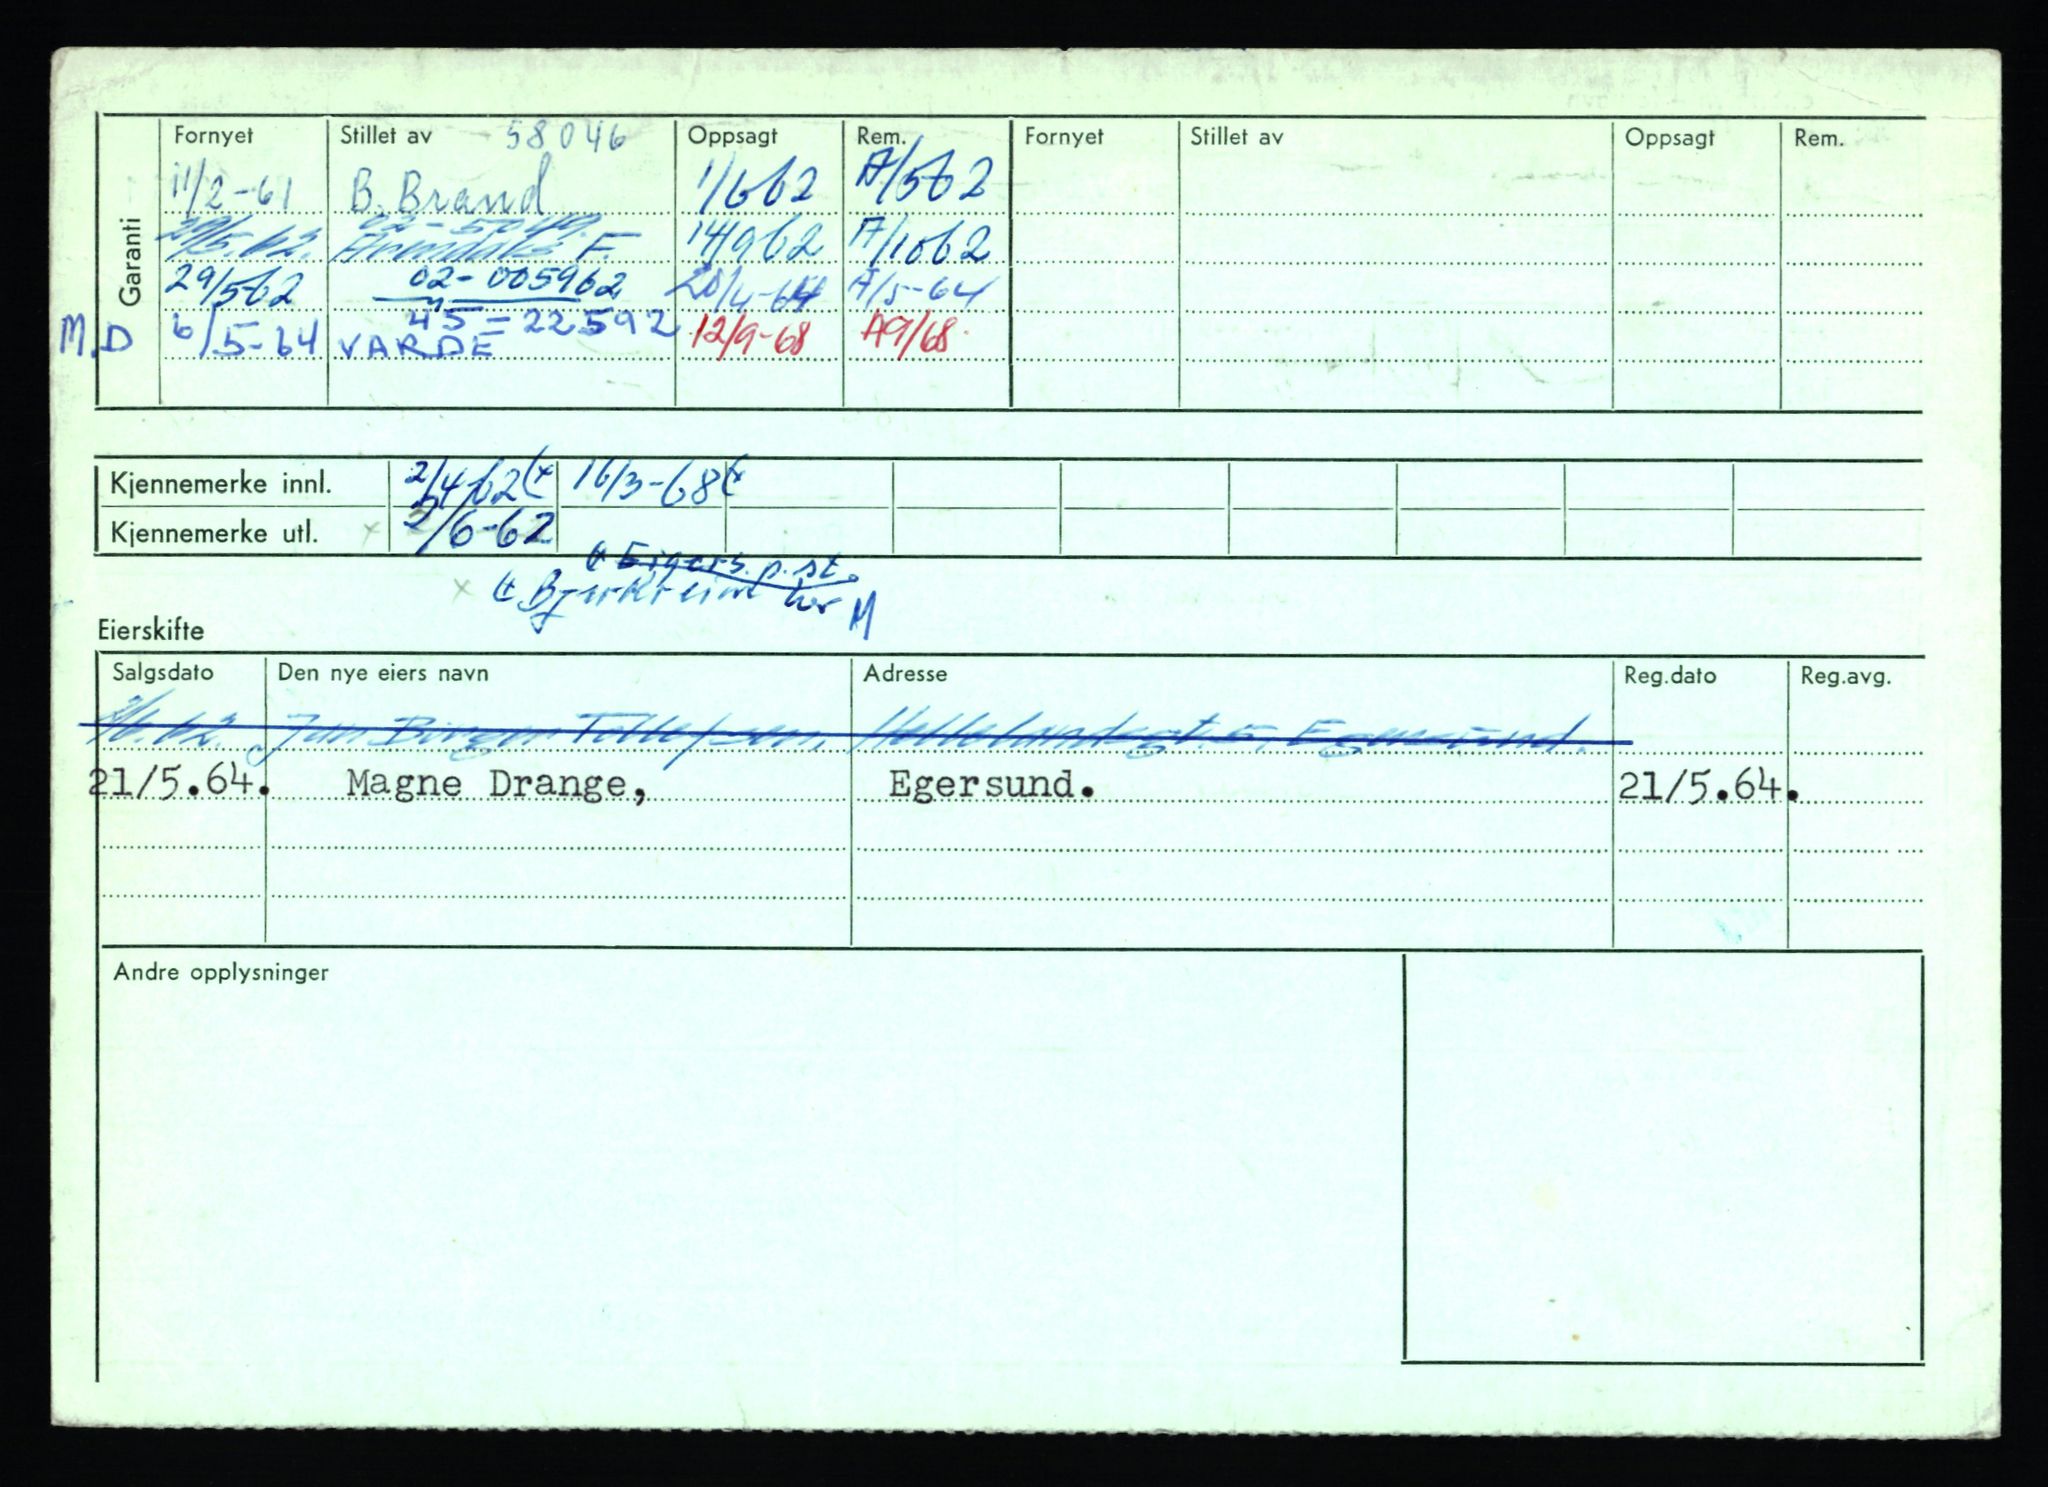 Garanti
Fornyet Stillet av 58046 Oppsagt Rem. Fornyet Stillet av Oppsagt Rem.
11/2-61 B. Brand 1/6 62 A/5 62
29/5.62. Arendals F. 14/9 62 A/10 62
29/5 62 02-005962 20/4-64 A/5-64
45=22592
M.D 6/5-64 VARDE 12/9-68 A9/68.
Kjennemerke innl. 2/4-62 (x 16/3-68 (x
Kjennemerke utl. x 2/6-62
Eigers. p.st.
x Bjerkreim her M
Eierskifte
Salgsdato Den nye eiers navn Adresse Reg.dato Reg.avg.
2/6.62. Jan Birger Tollefsen, Hellelandsgt. 5, Egersund.
21/5.64. Magne Drange, Egersund. 21/5.64.
Andre opplysninger